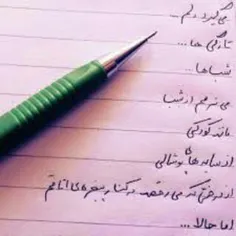 می گیرد دلم
تازگی ها ...
شبها ...
می ترسم از شب
مانند کودکی
از سایه های پوشالی
از درختی که می رقصد در کنار پنجره ی اتاقم
اما حالا ...